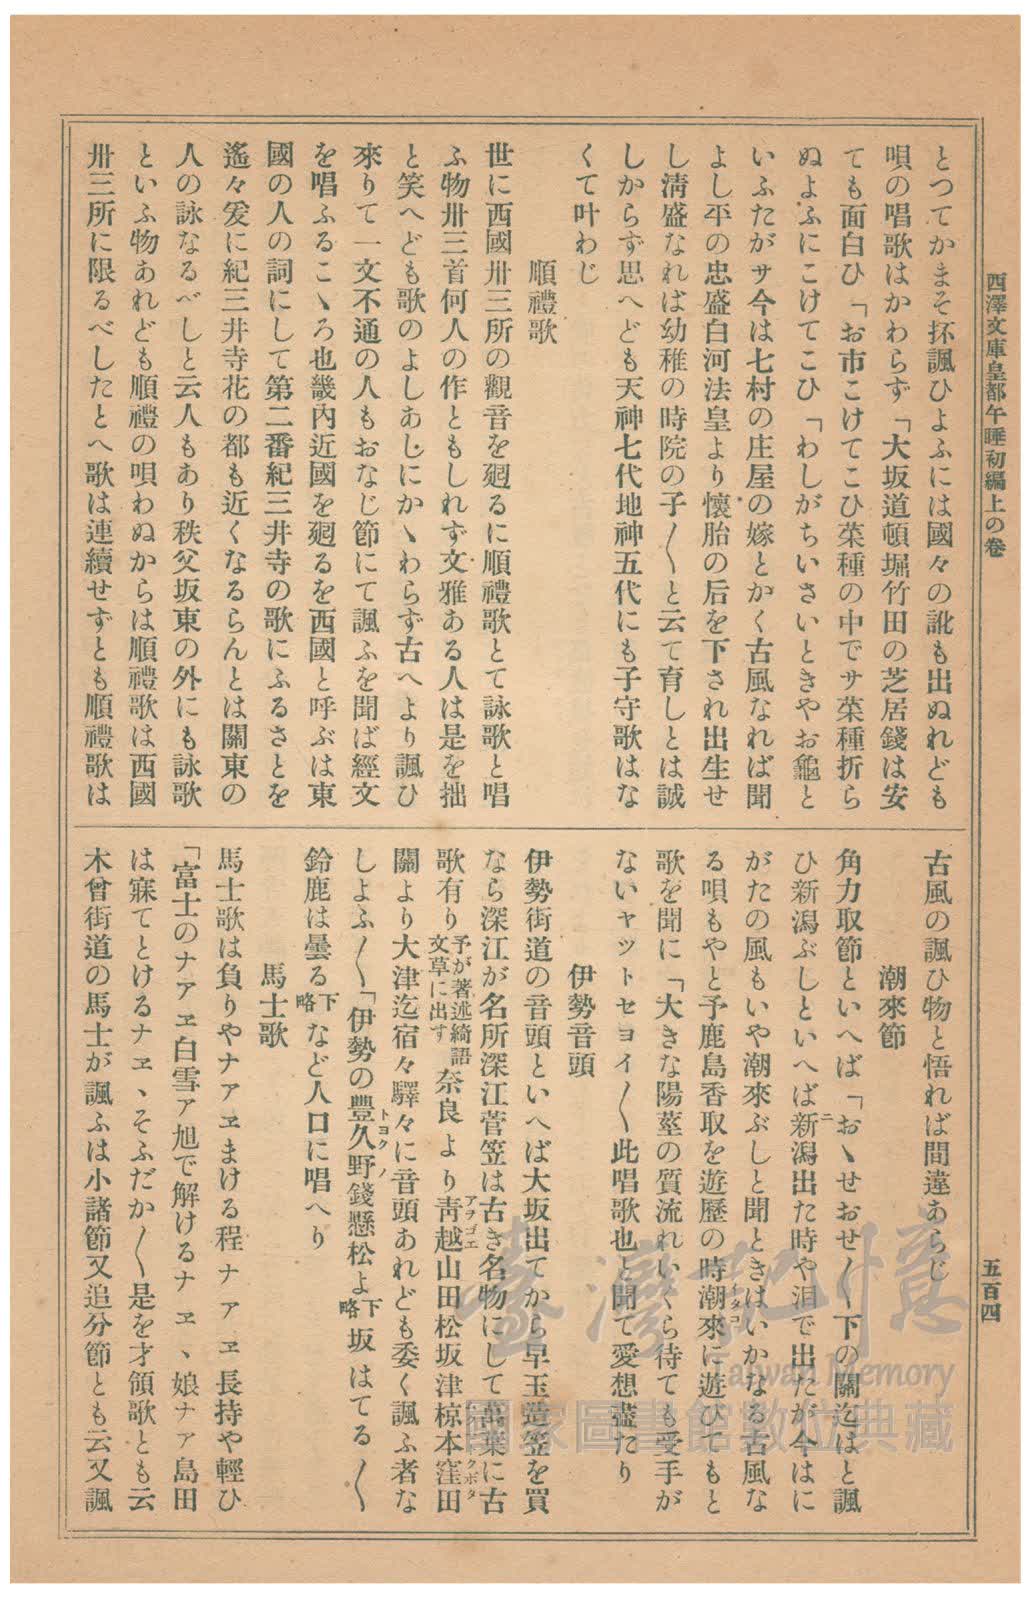 西澤文庫皇都午睡初編上の卷
五百四
とつてかまそ抔諷ひよふには國々の訛も出ぬれども
唄の唱歌はかわらず「大坂道頓堀竹田の芝居錢は安
ても面白ひ「お市こけてこひ菜種の中でサ菜種折ら
ぬよふにこけてこひ「わしがちいさいときやお龜と
いふたがサ今は七村の庄屋の嫁とかく古風なれば聞
よし平の忠盛白河法皇より懷胎の后を下され出生せ
し淸盛なれば幼稚の時院の子〱と云て育しとは誠
しからず思へども天神七代地神五代にも子守歌はな
くて叶わじ
順禮歌
世に西國卅三所の觀音を廻るに順禮歌とて詠歌と唱
ふ物卅三首何人の作ともしれず文雅ある人は是を拙
と笑へども歌のよしあしにかゝわらず古へより諷ひ
來りて一文不通の人もおなじ節にて諷ふを聞ば經文
を唱ふるこゝろ也畿內近國を廻るを西國と呼ぶは東
國の人の詞にして第二番紀三井寺の歌にふるさとを
遙々爰に紀三井寺花の都も近くなるらんとは關東の
人の詠なるべしと云人もあり秩父坂東の外にも詠歌
といふ物あれども順禮の唄わぬからは順禮歌は西國
卅三所に限るべしたとへ歌は連續せずとも順禮歌は
古風の諷ひ物と悟れば間違あらじ
潮來節
角力取節といへば「おゝせおせ〱下の關迄はと諷
ひ新潟ぶしといへば新潟出た時や泪で出たが今はに
がたの風もいや潮來ぶしと聞ときはいかなる古風な
る唄もやと予鹿島香取を遊歷の時潮來に遊びてもと
歌を聞に「大きな陽莖の質流れいくら待ても受手が
ないヤットセヨイ〱此唱歌也と聞て愛想盡たり
伊勢音頭
伊勢街道の音頭といへば大坂出てから早玉造笠を買
なら深江が名所深江菅笠は古き名物にして萬葉に古
歌有り予が著述綺語文草に出す奈良より靑越山田松坂津椋本窪田
關より大津迄宿々驛々に音頭あれども委く諷ふ者な
しよふ〱「伊勢の豐久野錢懸松よ下略坂はてる〱
鈴鹿は曇る下略など人口に唱へり
馬士歌
馬士歌は負りやナアヱまける程ナアヱ長持や輕ひ
「富士のナアヱ白雪ア旭で解けるナヱヽ娘ナア島田
は寐てとけるナヱヽそふだか〱是を才領歌とも云
木曾街道の馬士が諷ふは小諸節又追分節とも云又諷
臺灣記憶
Taiwan Memory
國家圖書館數位典藏